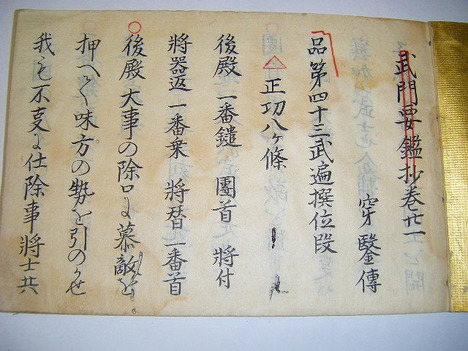 武門要鑑抄巻廿一
穿鑿傳
品第四十三武遍撰位段
正功八ヶ條
後殿 一番鑓 團首 將付
將器返 一番乗 將替 一番首
後殿 大事の除口に慕敵を
押へて味方の勢を引のかせ
我も不支に仕除事將士共